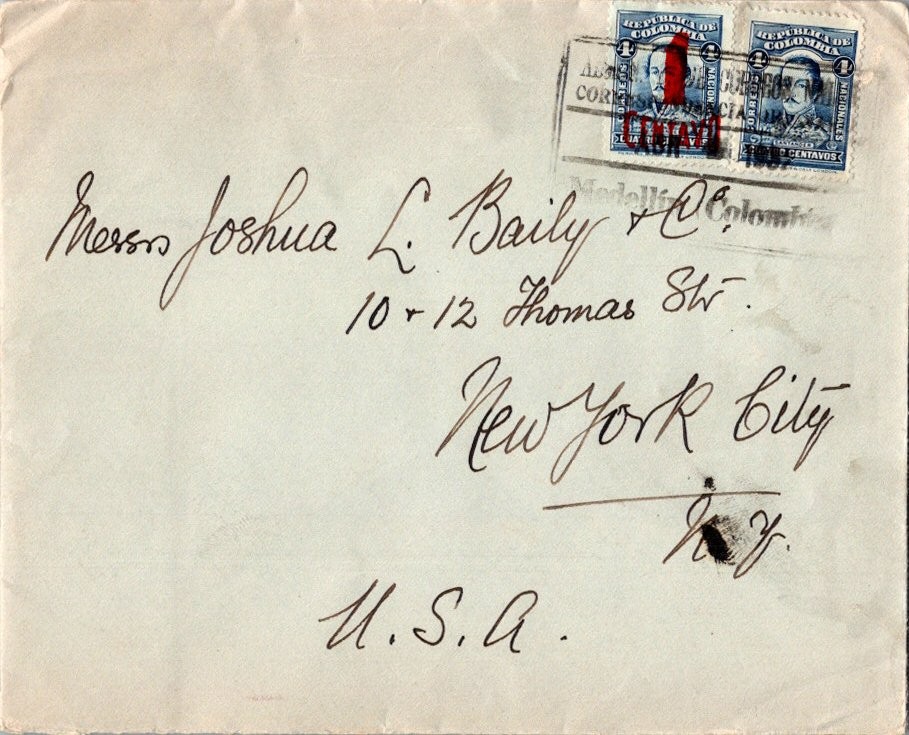 REPUBLICA DE
COLOMBIA
4 4
CORREOS NACIONALES
1
CENTAVO
REPUBLICA DE
COLOMBIA
4 4
CORREOS NACIONALES
SANTANDER
CUATRO CENTAVOS
Medellín Colombia
Messrs Joshua L. Baily & Co.
10 & 12 Thomas Str.
New York City
N. Y.
U. S. A.